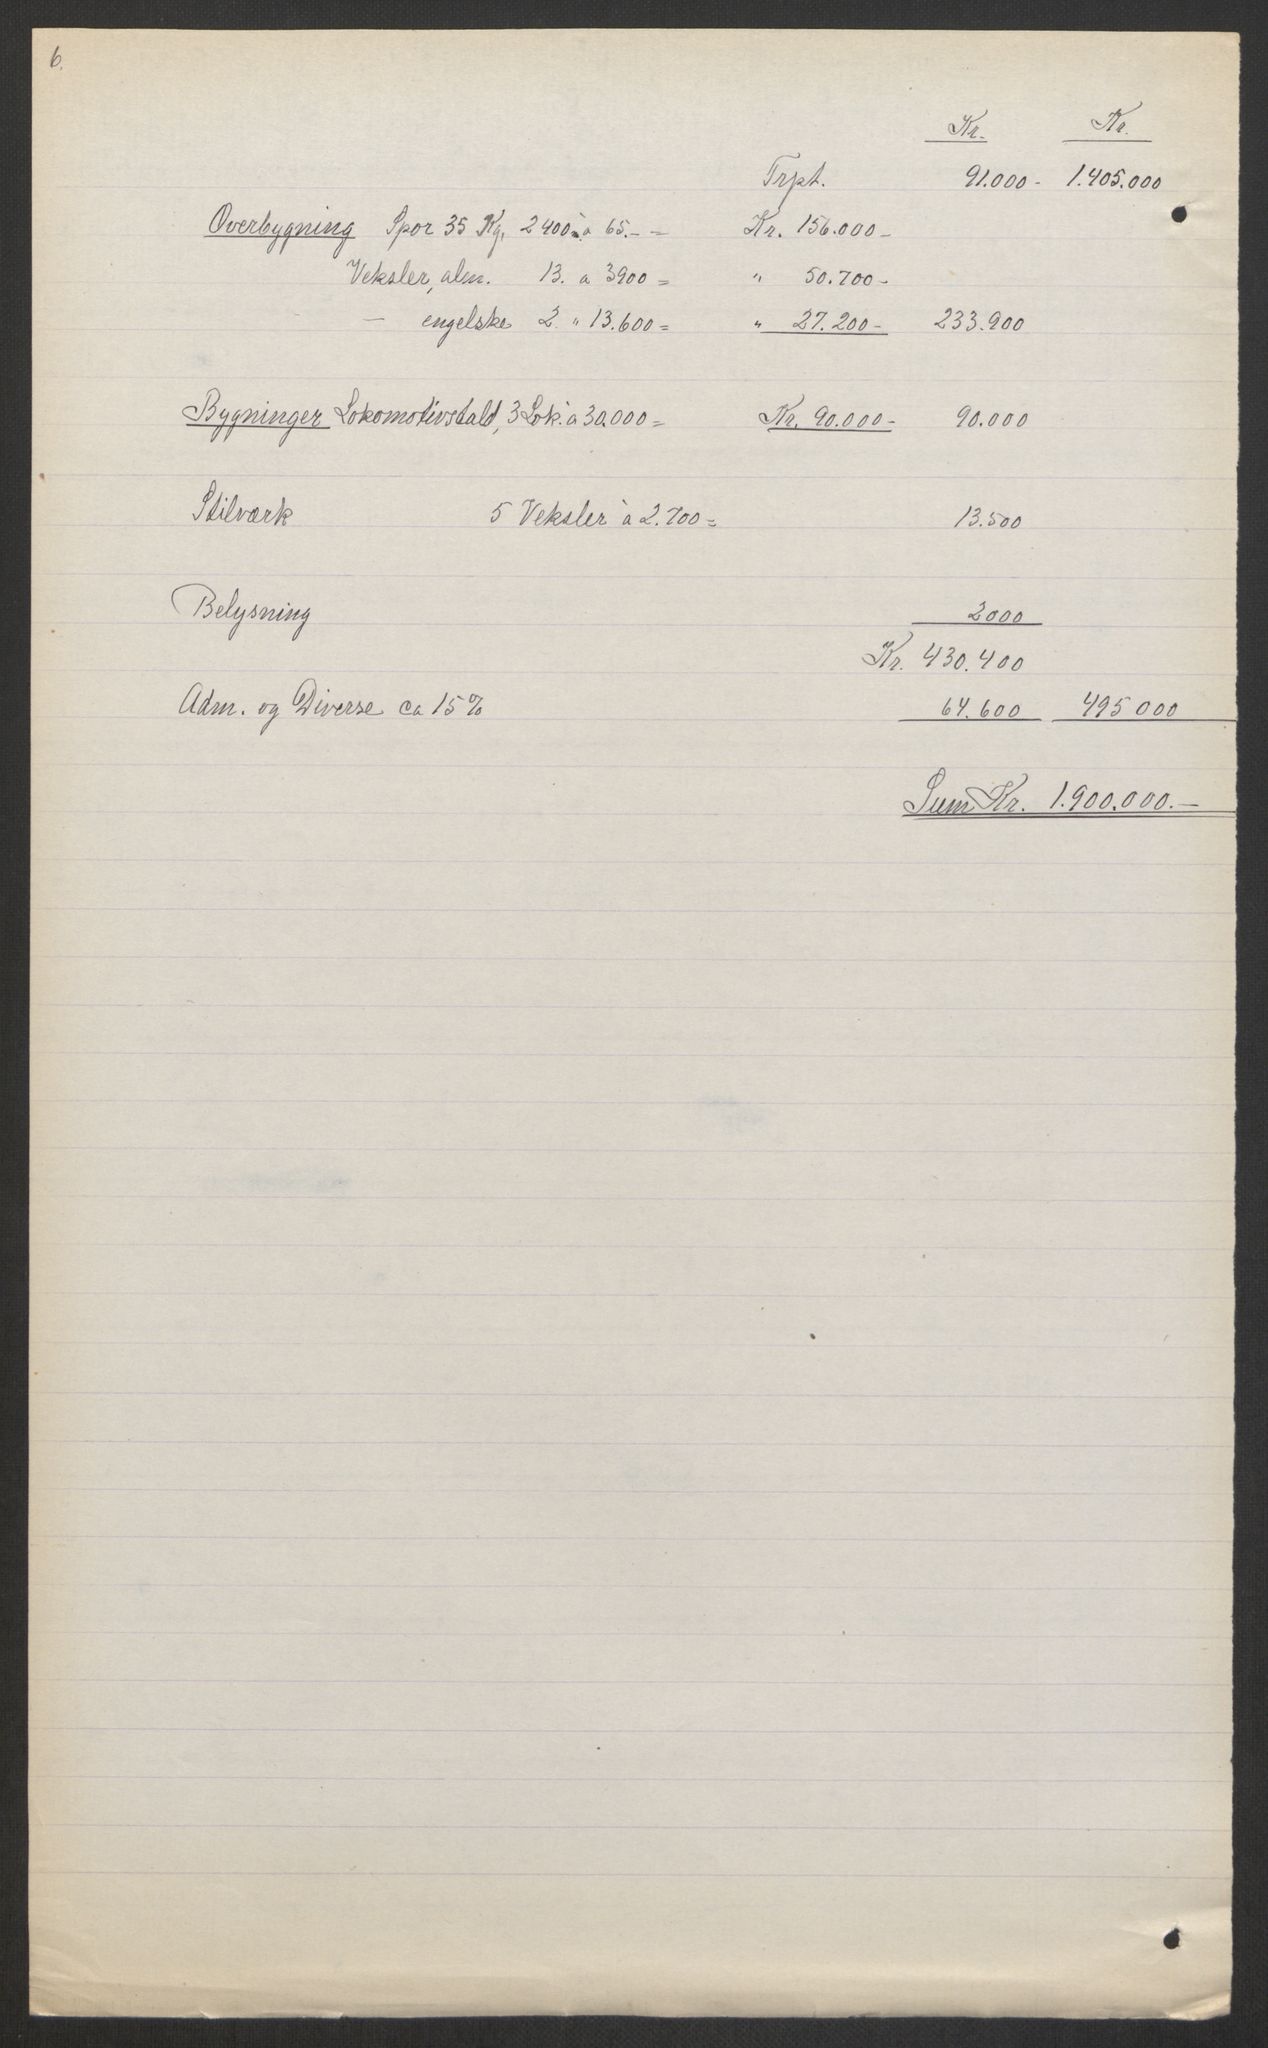 6.
Kr. Kr.
Trpt. 91.000- 1.405.000
Overbygning Spor 35 Kg. 2400 m. à 65.- = Kr. 156.000-
Veksler, alm. 13. a 3900 = " 50.700-
— engelske 2. " 13.600 = " 27.200- 233.900
Bygninger Lokomotivstald, 3 Lok. à 30.000 = Kr. 90.000- 90.000
Stilværk 5 Veksler à 2.700 = 13.500
Belysning 2000
Kr. 430.400
Adm. og Diverse ca 15% 64.600 495000
Sum Kr. 1.900.000.—